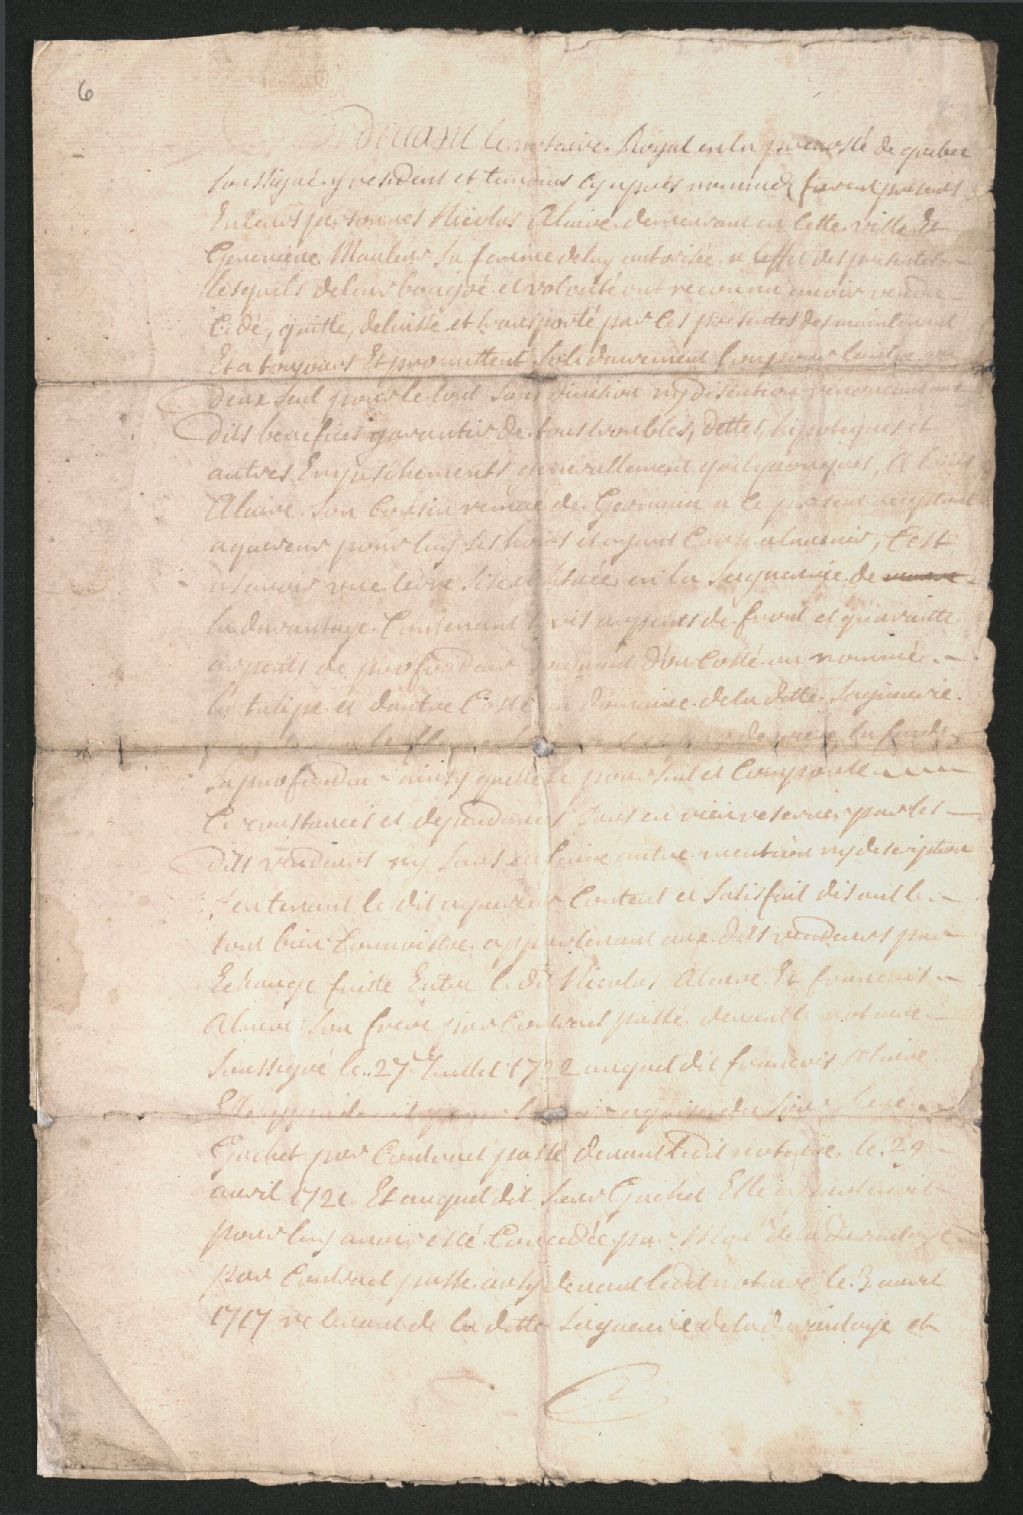 6
devant le notaire Royal en la prevosté de quebec
soussigné y resident et temoins cy apres nommez furent presens
En leurs personnes Nicolas Alaire demeurant en cette ville Et
Genevieve Mauleur sa femme de luy autorisée a l'effet des presentes
lesquels de leur bon gré et volonté ont reconnu avoir vendu
Cedé, quitte, delaissé et transporté par ces presentes des maintenant
Et a toujours Et promettent solidairement l'un pour l'autre
deux seul pour le tout sans division ny discution renonçant aux
dits benefices garantir de tous troubles, dettes, hipoteques et
autres Empeschements generallement quelquonques, A
Alaire son Cousin remué de Germain a ce present acceptant
aquereur pour luy ses hoirs et ayans Cause alavenir, C'est
asavoir une terre size et située en la Seigneurie de
la durantaye Contenant trois arpents de front et quarante
arpents de profondeur joignant d'un Costé au nommé
la tulipe et d'autre Costé au domaine de la ditte Seigneurie
sa profondeur ainsy quelle se poursuit et Comporte
Circonstances et dependances sans en rien reserver par les
dits vendeurs ny sans en faire autre mention ny description
s'en tenant le dit aquereur Content et satisfait disant le
tout bien Connoistre appartenant aux dits vendeurs par
Echange faitte Entre le dit Nicolas Alaire Et francois
Alaire son frere par Contrat passé devant le notaire
soussigné le 27 Juillet 1722 auquel dit francois Alaire
Gachet par Contract passé devant ledit notaire le 29
avril 1721 Et auquel dit sieur Gachet Elle appartenoit
pour luy avoir esté Concedée par Mr de la durantaye
par Contract passé aussy devant ledit notaire le 3 avril
1717 relevant de la ditte Seigneurie de la durantaye et